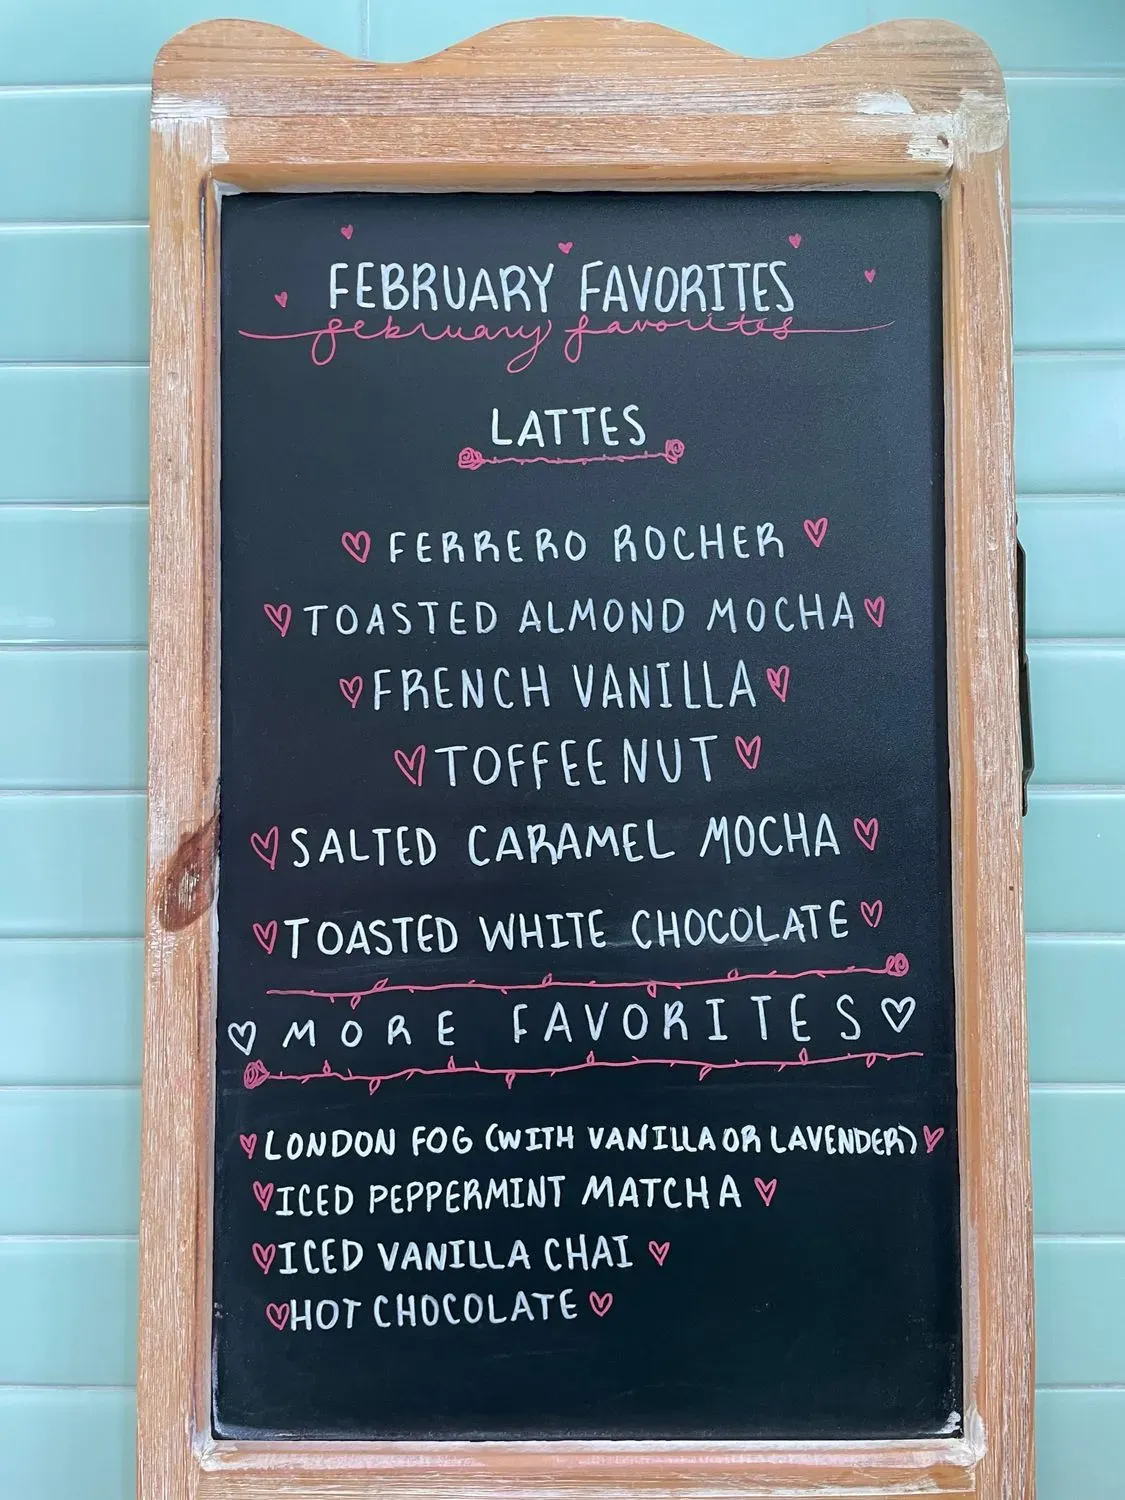 FEBRUARY FAVORITES
february favorites
LATTES
FERRERO ROCHER
TOASTED ALMOND MOCHA
FRENCH VANILLA
TOFFEE NUT
SALTED CARAMEL MOCHA
TOASTED WHITE CHOCOLATE
MORE FAVORITES
LONDON FOG (WITH VANILLA OR LAVENDER)
ICED PEPPERMINT MATCHA
ICED VANILLA CHAI
HOT CHOCOLATE